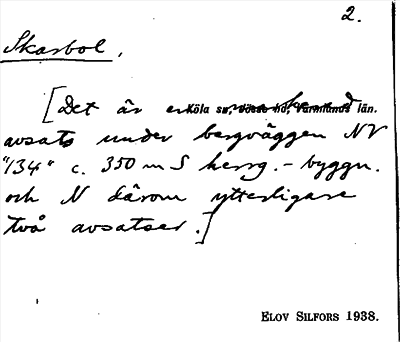 2.
Skarbol.
[Det är en markerad
Köla sn, Jösse hd, Värmlands län.
avsats under bergväggen NV
"134" c. 350 m S herrg.-byggn.
och N därom ytterligare
två avsatser.]
ELOV SILFORS 1938.